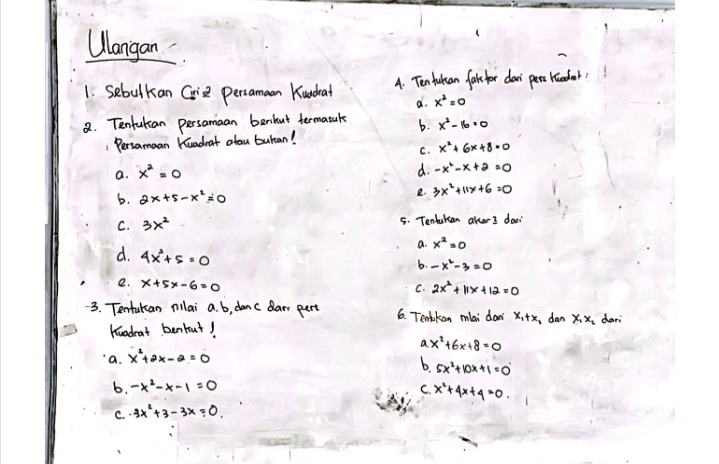 Ulangan
1. Sebutkan Ciri2 Persamaan Kuadrat
2. Tentukan Persamaan berikut termasuk
Persamaan Kuadrat atau bukan!
a. x² = 0
b. 2x+5-x² = 0
c. 3x²
d. 4x²+5 = 0
e. x+5x-6=0
3. Tentukan nilai a, b, dan c dari pers
Kuadrat berikut!
a. x²+2x-2=0
b. -x²-x-1=0
c. -3x²+3-3x=0.
4. Tentukan faktor dari pers Kuadrat:
a. x²=0
b. x²-16=0
c. x²+6x+8=0
d. -x²-x+2=0
e. 3x²+11x+6=0
5. Tentukan akar2 dari
a. x²=0
b. -x²-3=0
c. 2x²+11x+12=0
6. Tentukan nilai dari x₁+x₂ dan x₁x₂ dari
a. x²+6x+8=0
b. 5x²+10x+1=0
c. x²+4x+4=0.